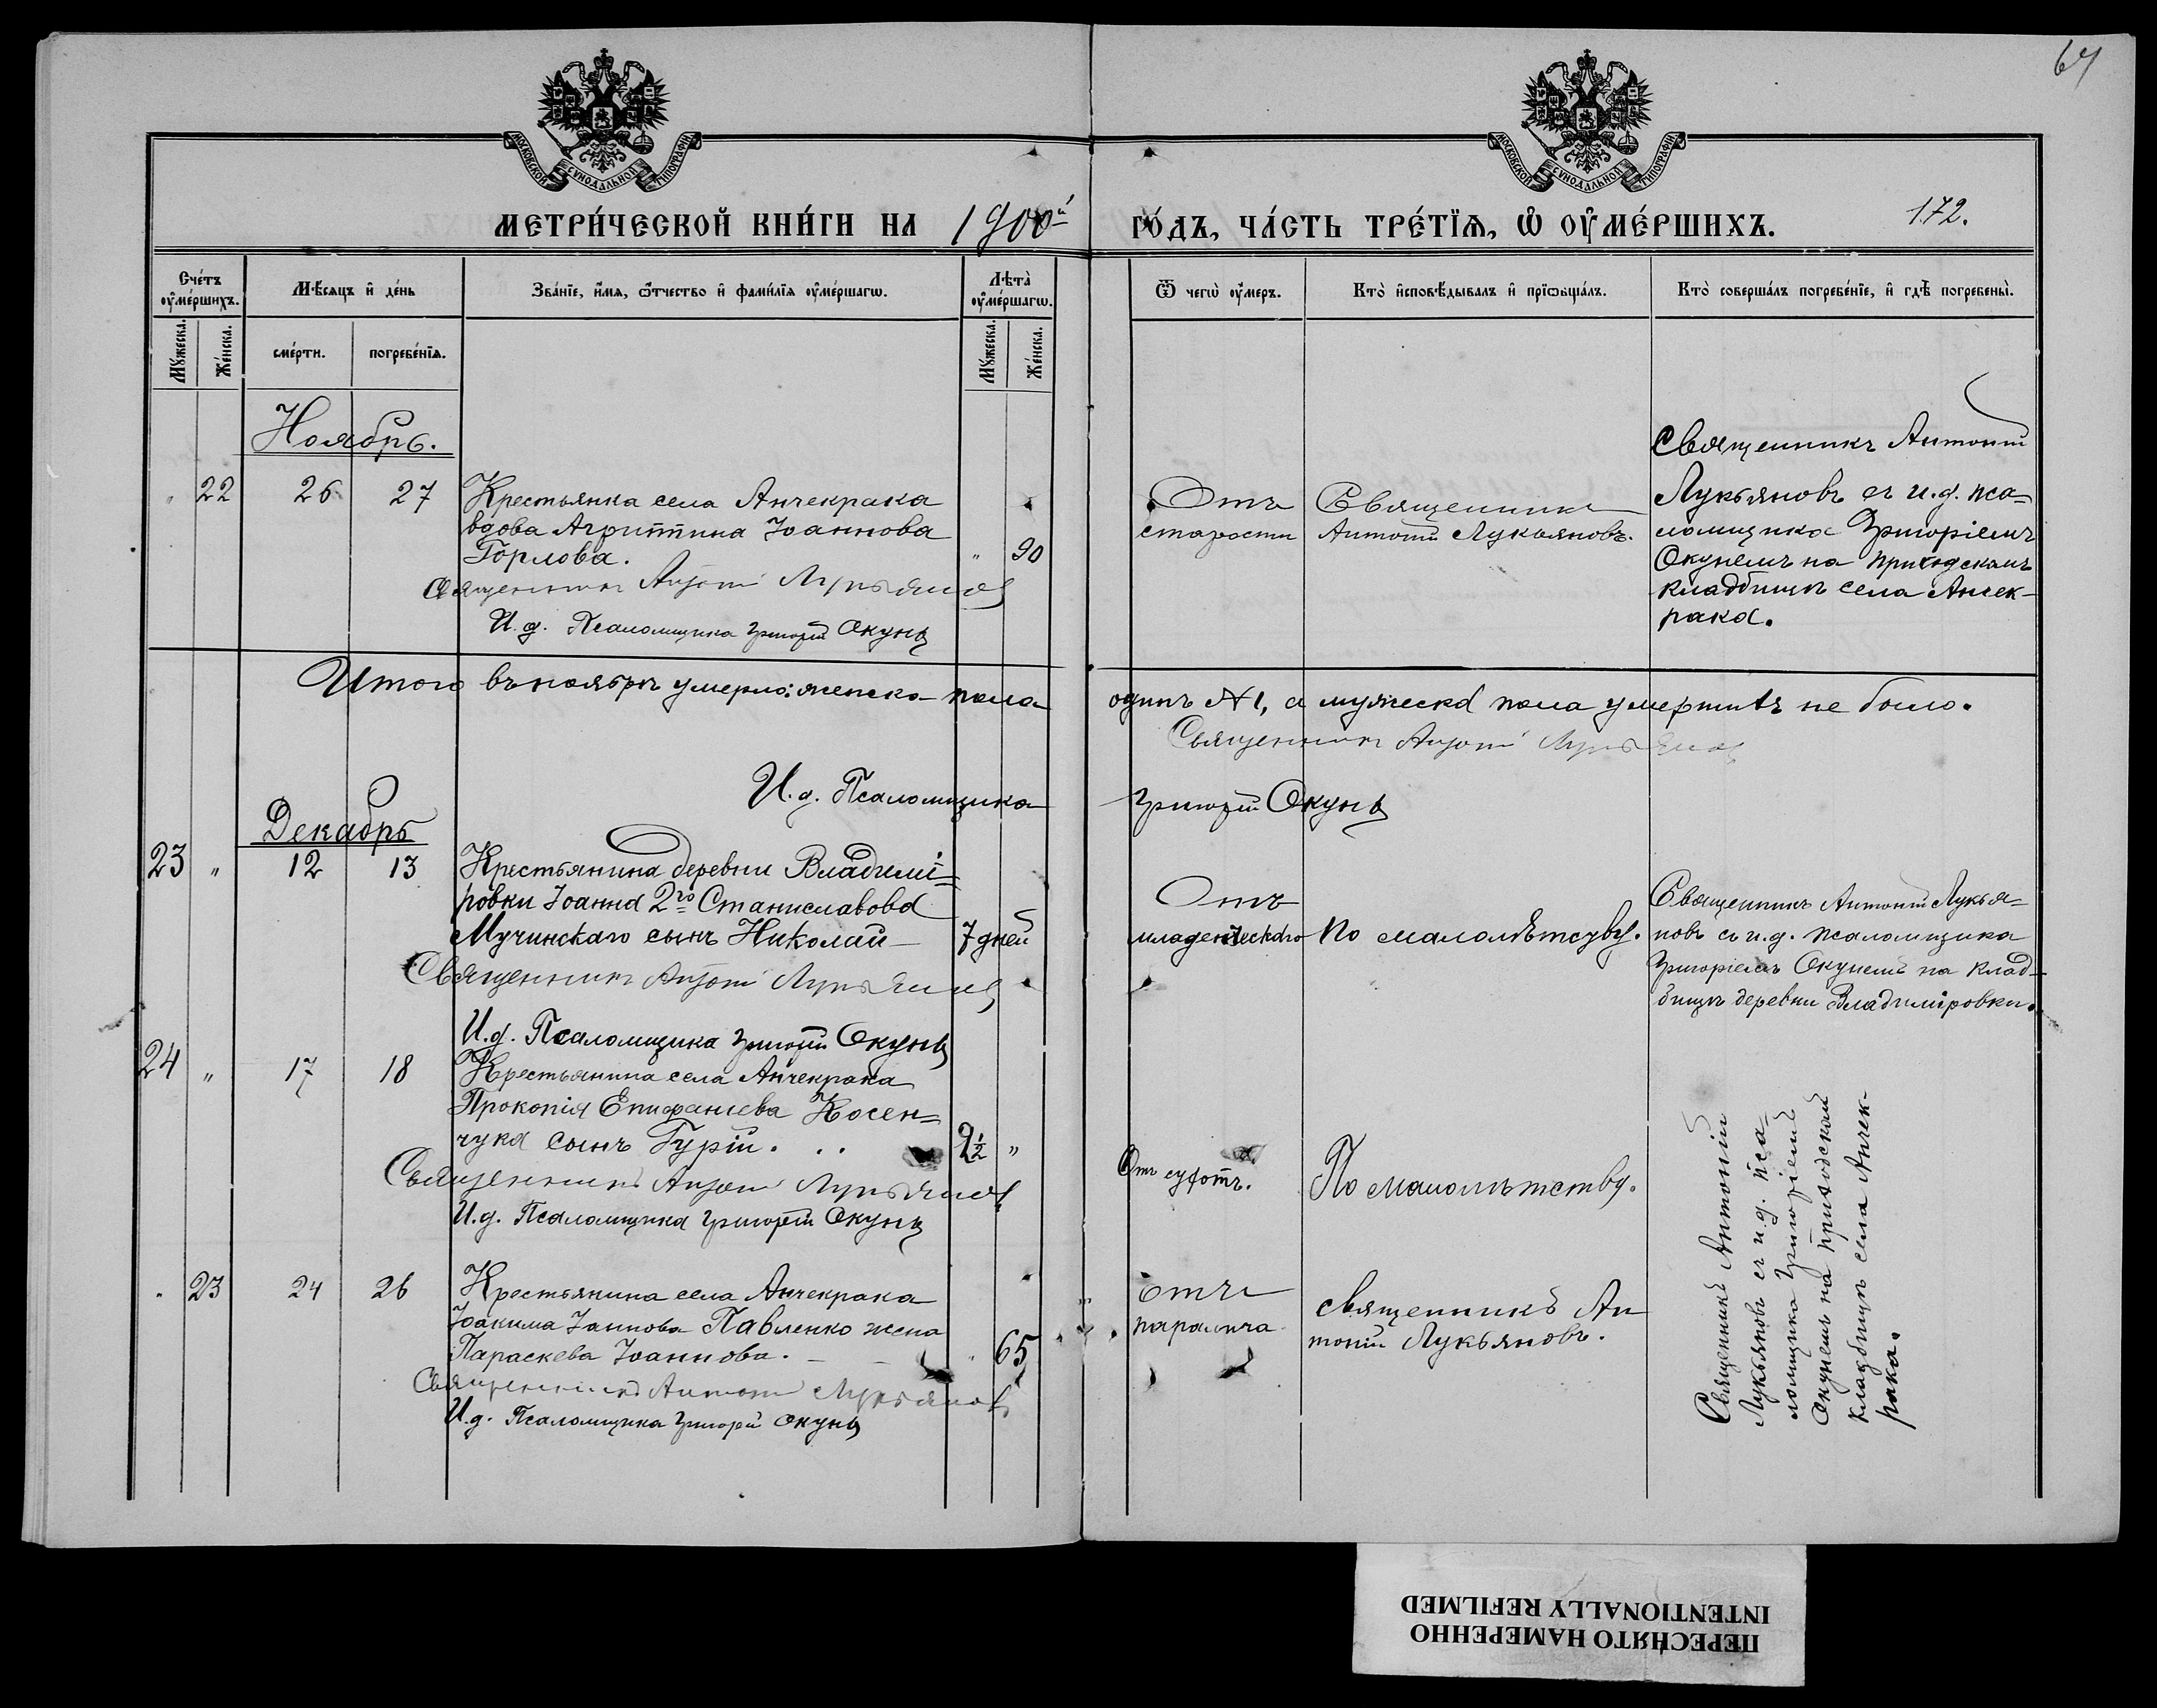 64
МОСКОВСКОЙ СУНОДАЛЬНОЙ ТИПОГРАФІИ
МОСКОВСКОЙ СУНОДАЛЬНОЙ ТИПОГРАФІИ
МЕТРИ́ЧЕСКОЙ КНИ́ГИ НА 1900й ГО́ДЪ, ЧА́СТЬ ТРЕ́ТЇѦ, Ѡ҆ ОУ҆МЕ́РШИХЪ. 172.
Сче́тъ оу҆ме́ршихъ.
Мꙋ́жеска.
Же́нска.
Мѣ́сѧцъ и҆ де́нь
сме́рти.
погребе́нїѧ.
Зва́нїе, и҆́мѧ, ѻ҆́тчество и҆ фами́лїѧ оу҆ме́ршагѡ.
Лѣта̀ оу҆ме́ршагѡ.
Мꙋ́жеска.
Же́нска.
Ѿ чегѡ̀ оу҆́меръ.
Кто̀ и҆сповѣ́дывалъ и҆ прїѡбща́лъ.
Кто̀ соверша́лъ погребе́нїе, и҆ гдѣ̀ погребены̀.
Ноябрь.
" 22 26 27
Крестьянка села Анчекрака
вдова Агриппина Іоаннова
Горлова. " 90
Священникъ Антоній Лукьяновъ
И. д. Псаломщика Григорій Окунь
Отъ
старости
Священникъ
Антоній Лукьяновъ.
Священникъ Антоній
Лукьяновъ съ и. д. пса-
ломщика Григоріемъ
Окунемъ на приходскомъ
кладбищѣ села Анчек-
рака.
Итого въ ноябрѣ умерло: женска пола одинъ №1, а мужеска пола умершихъ не было.
Священникъ Антоній Лукьяновъ
И. д. Псаломщика Григорій Окунь
Декабрь
23 " 12 13
Крестьянина деревни Владимі=
ровки Іоанна 2го Станиславова
Мучинскаго сынъ Николай 7 дней
Священникъ Антоній Лукьяновъ
И. д. Псаломщика Григорій Окунь
Отъ
младенческаго
По малолѣтству.
Священникъ Антоній Лукья=
новъ съ и. д. псаломщика
Григоріемъ Окунемъ на клад-
бищѣ деревни Владиміровки.
24 " 17 18
Крестьянина села Анчекрака
Прокопія Епифаніева Косен=
чука сынъ Гурій. . . 2½ "
Священникъ Антоній Лукьяновъ
И. д. Псаломщика Григорій Окунь
Отъ сухотъ.
По малолѣтству.
" 23 24 26
Крестьянина села Анчекрака
Іоакима Іаннова Павленко жена
Параскева Іоаннова. " 65
Священникъ Антоній Лукьяновъ
И. д. Псаломщика Григорій Окунь
Отъ
паралича
Священникъ Ан
тоній Лукьяновъ.
Священникъ Антоній
Лукьяновъ съ и. д. пса-
ломщика Григоріемъ
Окунемъ на приходской
кладбищѣ села Анчек-
рака.
ПЕРЕСНЯТО НАМЕРЕННО
INTENTIONALLY REFILMED